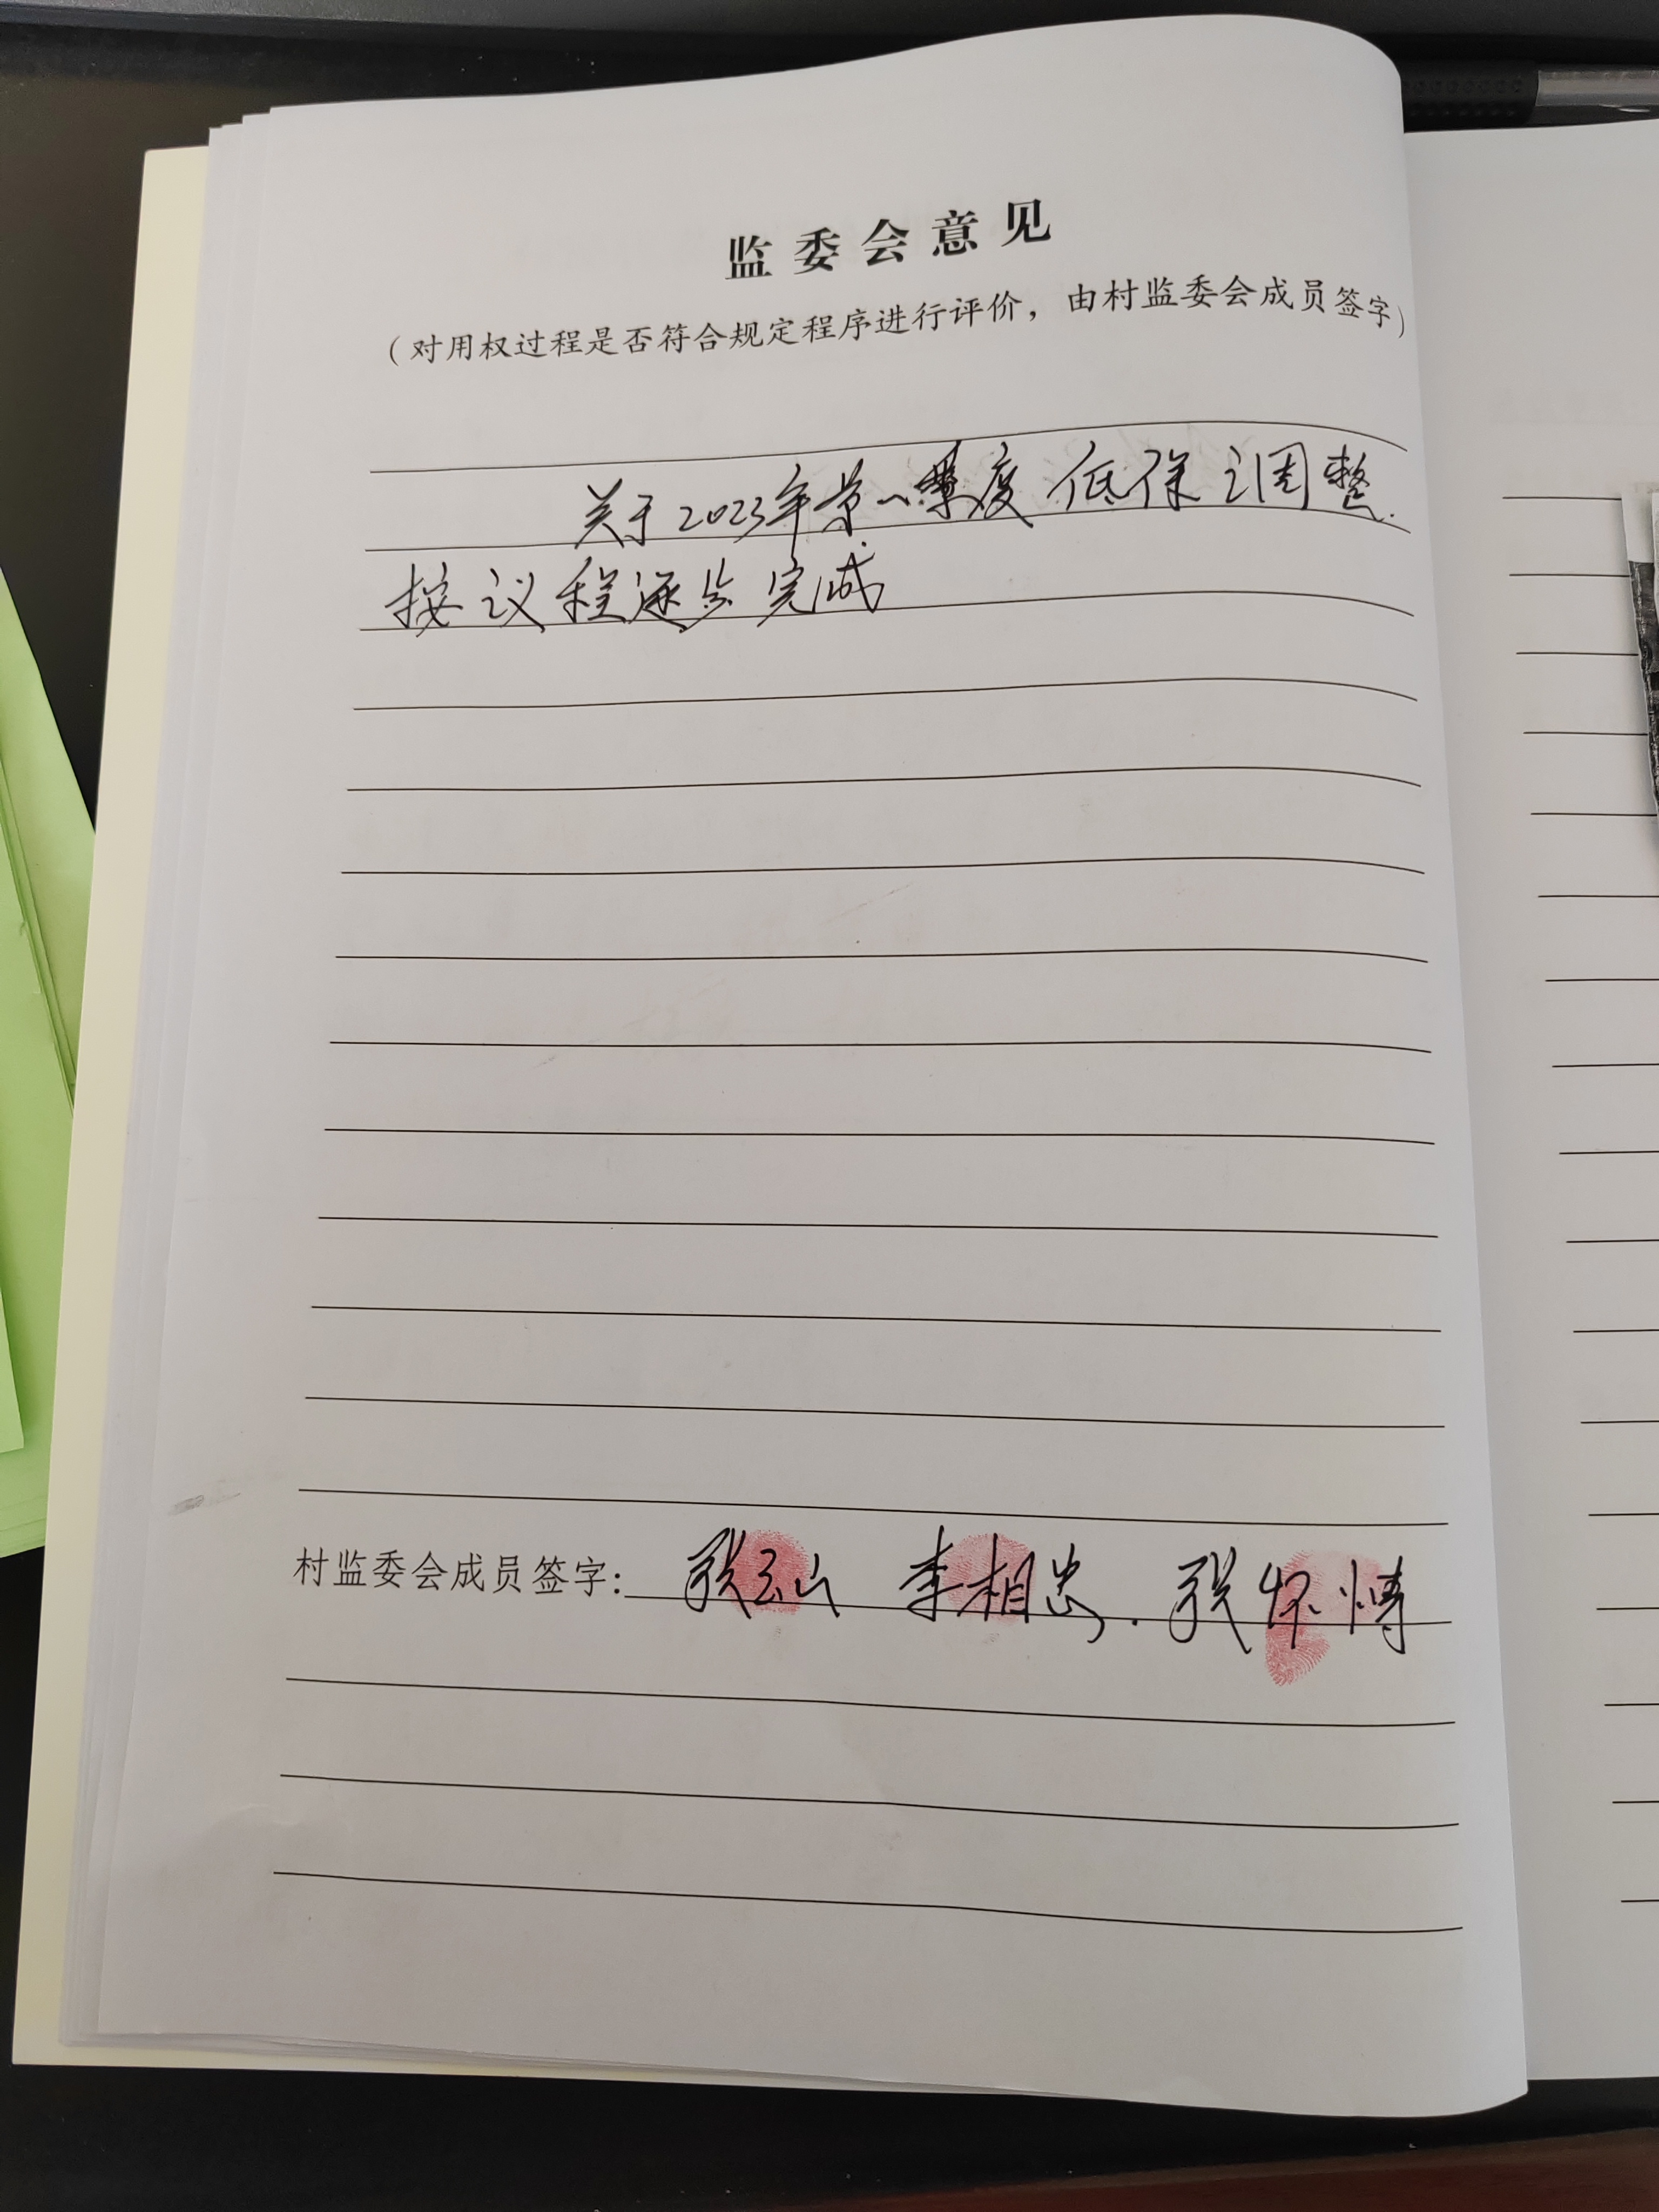 监委会意见
（对用权过程是否符合规定程序进行评价，由村监委会成员签字）
关于2023年第一季度低保调整
按议程逐步完成
村监委会成员签字：张云山 李相忠.张怀博